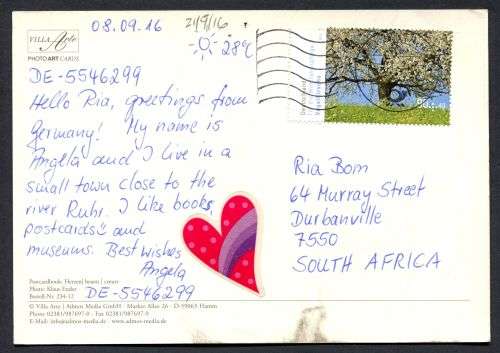 08.09.16
21/9/16
28°C
VILLA Arte
PHOTO ART CARDS
DE-5546299
Hello Ria, greetings from
Germany! My name is
Angela and I live in a
small town close to the
river Ruhr. I like books,
postcards and
museums. Best wishes
Angela
DE-5546299
Postcardbook: Herzen| hearts | coeurs
Photo: Klaus Ender
Bestell-Nr. 234-12
© Villa Arte | Admos Media GmbH · Marker Allee 26 · D-59063 Hamm
Phone 02381/987697-0 · Fax 02381/987697-8
E-Mail: info@admos-media.de · www.admos-media.de
Ria Bom
64 Murray Street
Durbanville
7550
SOUTH AFRICA